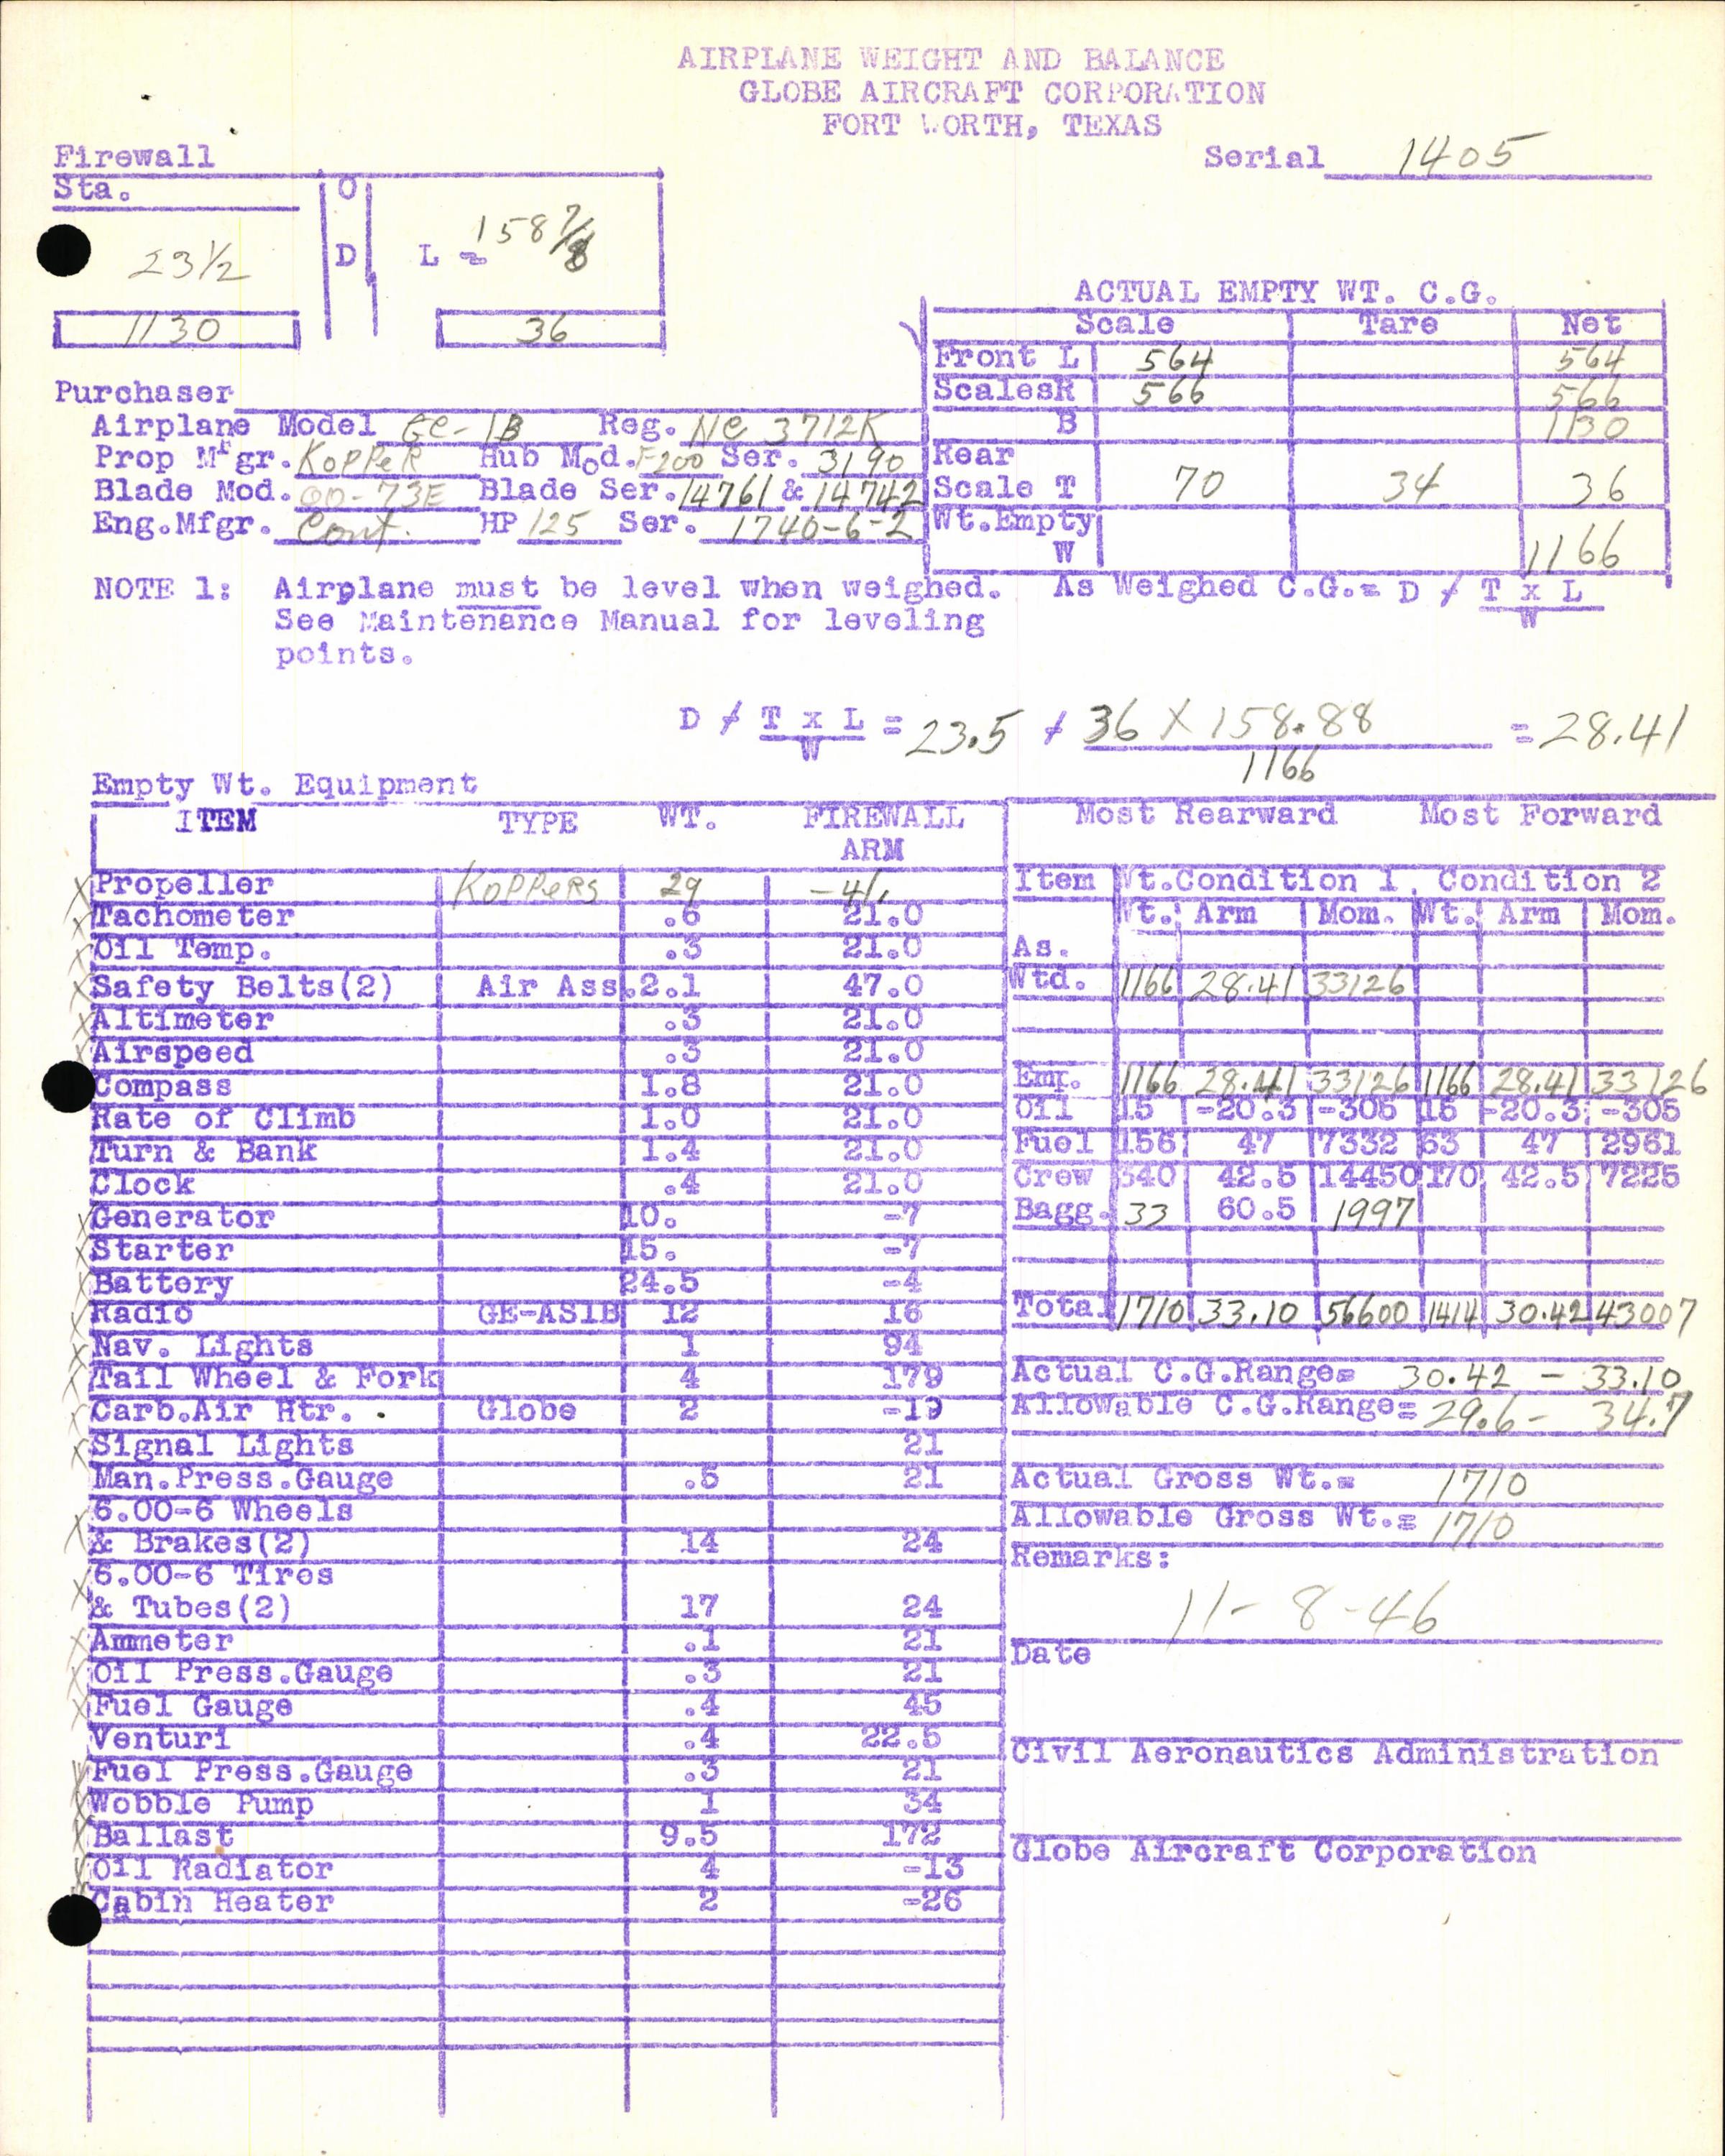 AIRPLANE WEIGHT AND BALANCE
GLOBE AIRCRAFT CORPORATION
FORT WORTH, TEXAS
Serial 1405
Firewall
Sta. O
23 1/2 D L = 158 7/8
1130 36
ACTUAL EMPTY WT. C.G.
Scale Tare Net
Front L 564 564
Scales R 566 566
B 1130
Rear
Scale T 70 34 36
Wt. Empty
W 1166
Purchaser
Airplane Model GC-1B Reg. NC 3712K
Prop Mfgr. KOPPER Hub Mod. F200 Ser. 3190
Blade Mod. 00-73E Blade Ser. 14761 & 14742
Eng.Mfgr. Cont. HP 125 Ser. 1740-6-2
NOTE 1: Airplane must be level when weighed.
See Maintenance Manual for leveling
points.
As Weighed C.G.= D / T x L
W
D / T x L = 23.5 / 36 X 158.88 = 28.41
W 1166
Empty Wt. Equipment
ITEM TYPE WT. FIREWALL
ARM
X Propeller KOPPERS 29 -41.
X Tachometer .6 21.0
X Oil Temp. .3 21.0
X Safety Belts(2) Air Ass. 2.1 47.0
X Altimeter .3 21.0
X Airspeed .3 21.0
Compass 1.8 21.0
Rate of Climb 1.0 21.0
Turn & Bank 1.4 21.0
Clock .4 21.0
X Generator 10. -7
X Starter 15. -7
X Battery 24.5 -4
X Radio GE-AS1B 12 16
X Nav. Lights 1 94
X Tail Wheel & Fork 4 179
X Carb.Air Htr. . Globe 2 -19
X Signal Lights 21
Man.Press.Gauge .5 21
X 6.00-6 Wheels
& Brakes(2) 14 24
X 6.00-6 Tires
& Tubes(2) 17 24
X Ammeter .1 21
X Oil Press.Gauge .3 21
X Fuel Gauge .4 45
Venturi .4 22.5
X Fuel Press.Gauge .3 21
X Wobble Pump 1 34
X Ballast 9.5 172
X Oil Radiator 4 -13
Cabin Heater 2 -26
Most Rearward Most Forward
Item Wt.Condition 1. Condition 2
Wt. Arm Mom. Wt. Arm Mom.
As.
Wtd. 1166 28.41 33126
Emp. 1166 28.41 33126 1166 28.41 33126
Oil 15 -20.3 -305 15 -20.3 -305
Fuel 156 47 7332 63 47 2961
Crew 340 42.5 14450 170 42.5 7225
Bagg. 33 60.5 1997
Total 1710 33.10 56600 1414 30.42 43007
Actual C.G.Range= 30.42 - 33.10
Allowable C.G.Range= 29.6 - 34.7
Actual Gross Wt.= 1710
Allowable Gross Wt.= 1710
Remarks:
11-8-46
Date
Civil Aeronautics Administration
Globe Aircraft Corporation